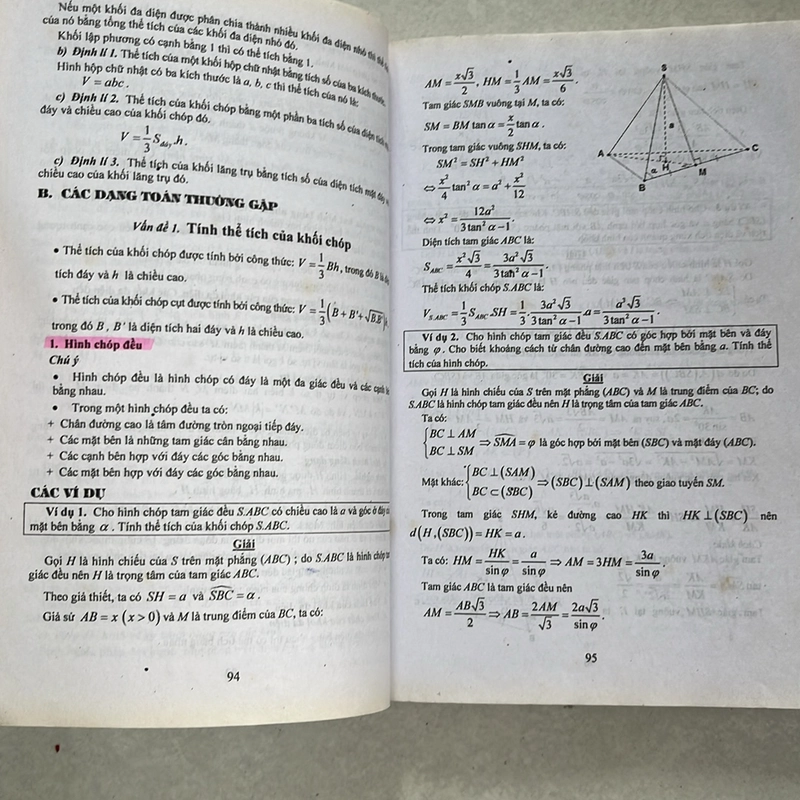 Nếu một khối đa diện được phân chia thành nhiều khối đa diện nhỏ thì thể
của nó bằng tổng thể tích của các khối đa diện nhỏ đó.
Khối lập phương có cạnh bằng 1 thì có thể tích bằng 1.
b) Định lí 1. Thể tích của một khối hộp chữ nhật bằng tích số của ba kích thước.
Hình hộp chữ nhật có ba kích thước là a, b, c thì thể tích của nó là:
V = abc.
c) Định lí 2. Thể tích của khối chóp bằng một phần ba tích số của diện tích
đáy và chiều cao của khối chóp đó.
V = 1/3 S đáy .h.
c) Định lí 3. Thể tích của khối lăng trụ bằng tích số của diện tích mặt đáy
chiều cao của khối lăng trụ đó.
B. CÁC DẠNG TOÁN THƯỜNG GẶP
Vấn đề 1. Tính thể tích của khối chóp
• Thể tích của khối chóp được tính bởi công thức: V = 1/3 Bh, trong đó B là
tích đáy và h là chiều cao.
• Thể tích của khối chóp cụt được tính bởi công thức: V = 1/3 (B + B' + √BB')
trong đó B, B' là diện tích hai đáy và h là chiều cao.
1. Hình chóp đều
Chú ý
• Hình chóp đều là hình chóp có đáy là một đa giác đều và các cạnh
bằng nhau.
• Trong một hình chóp đều ta có:
+ Chân đường cao là tâm đường tròn ngoại tiếp đáy.
+ Các mặt bên là những tam giác cân bằng nhau.
+ Các cạnh bên hợp với đáy các góc bằng nhau.
+ Các mặt bên hợp với đáy các góc bằng nhau.
CÁC VÍ DỤ
Ví dụ 1. Cho hình chóp tam giác đều S.ABC có chiều cao là a và góc ở đáy
mặt bên bằng α. Tính thể tích của khối chóp S.ABC.
Giải
Gọi H là hình chiếu của S trên mặt phẳng (ABC) ; do S.ABC là hình chóp
giác đều nên H là trọng tâm của tam giác ABC.
Theo giả thiết, ta có SH = a và SBC = α.
Giả sử AB = x (x > 0) và M là trung điểm của BC, ta có:
94
AM = x√3/2, HM = 1/3 AM = x√3/6.
Tam giác SMB vuông tại M, ta có:
SM = BM tan α = x/2 tan α.
Trong tam giác vuông SHM, ta có:
SM² = SH² + HM²
⇔ x²/4 tan² α = a² + x²/12
⇔ x² = 12a²/(3tan² α − 1).
S
a
A
C
H
α
M
B
Diện tích tam giác ABC là:
S ABC = x²√3/4 = 3a²√3/(3tan² α − 1).
Thể tích khối chóp S.ABC là:
V S.ABC = 1/3 S ABC .SH = 1/3 . 3a²√3/(3tan² α − 1) .a = a³√3/(3tan² α − 1).
Ví dụ 2. Cho hình chóp tam giác đều S.ABC có góc hợp bởi mặt bên và đáy
bằng φ. Cho biết khoảng cách từ chân đường cao đến mặt bên bằng a. Tính thể
tích của hình chóp.
Giải
Gọi H là hình chiếu của S trên mặt phẳng (ABC) và M là trung điểm của BC; do
S.ABC là hình chóp tam giác đều nên H là trọng tâm của tam giác ABC.
Ta có:
{BC ⊥ AM
{BC ⊥ SM ⇒ SMA = φ là góc hợp bởi mặt bên (SBC) và mặt đáy (ABC).
Mặt khác: {BC ⊥ (SAM)
{BC ⊂ (SBC) ⇒ (SBC) ⊥ (SAM) theo giao tuyến SM.
Trong tam giác SHM, kẻ đường cao HK thì HK ⊥ (SBC) nên
d(H,(SBC)) = HK = a.
Ta có: HM = HK/sin φ = a/sin φ ⇒ AM = 3HM = 3a/sin φ.
Tam giác ABC là tam giác đều nên
AM = AB√3/2 ⇒ AB = 2AM/√3 = 2a√3/sin φ.
95